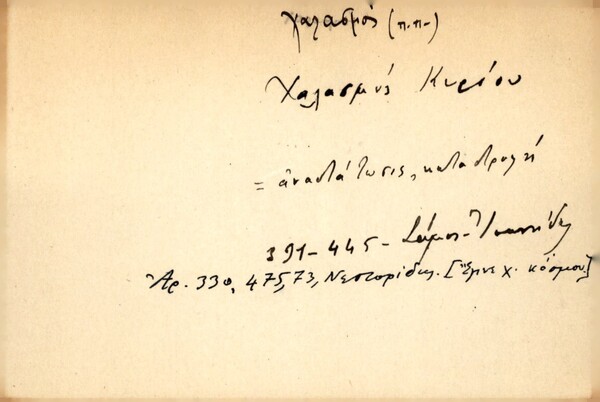 χαλασμός (π.π.)
Χαλασμός Κυρίου
= ἀναστάτωσις, καταστροφή
391-445- Σάμος-Ἰωαννίδης
Ἀρ. 330, 475,73, Νεστορίδης. [Ἔγινε χ. κόσμου]